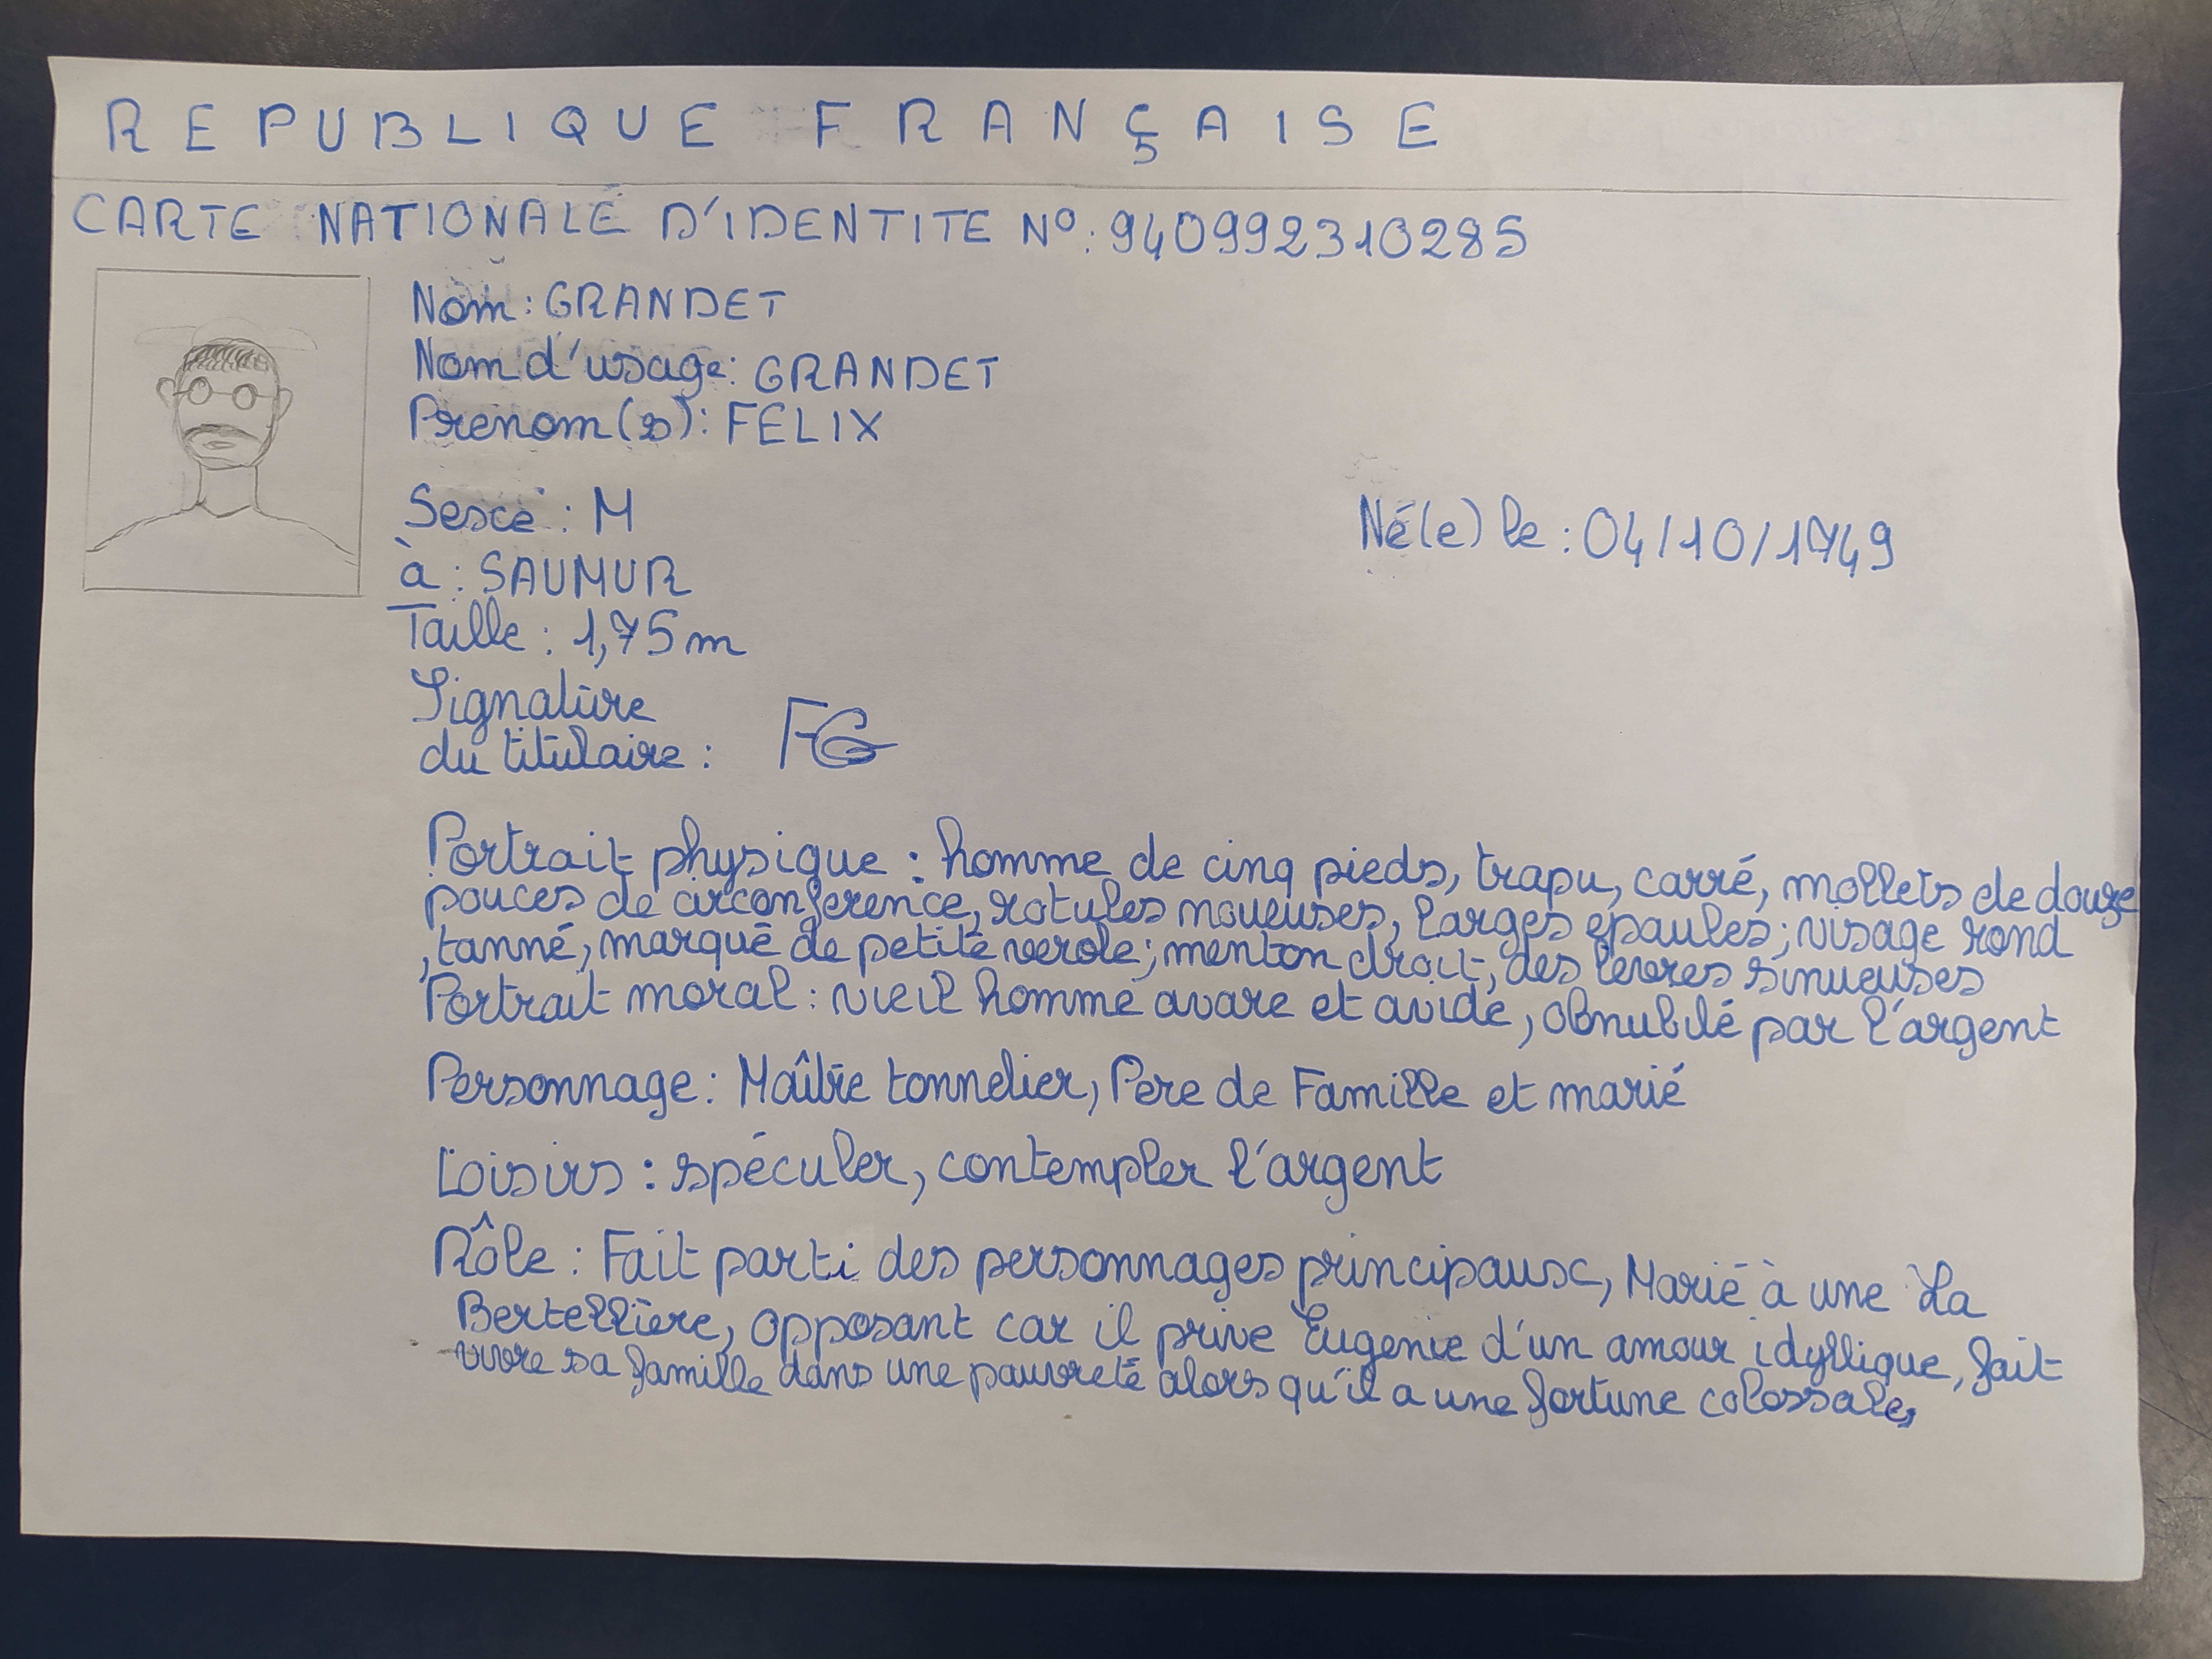 REPUBLIQUE FRANÇAISE
CARTE NATIONALE D'IDENTITE N°: 940992310285
Nom : GRANDET
Nom d'usage: GRANDET
Prenom(s): FELIX
Sexe : M
Né(e) le : 04/10/1749
à : SAUMUR
Taille : 1,75 m
Signature
du titulaire : FG
Portrait physique : homme de cinq pieds, trapu, carré, mollets de douze
pouces de circonference, rotules noueuses, larges epaules; visage rond
, tanné, marqué de petite verole; menton droit, des levres sinueuses
Portrait moral : vieil homme avare et avide, obnubilé par l'argent
Personnage : Maître tonnelier, Pere de Famille et marié
Loisirs : spéculer, contempler l'argent
Rôle : Fait parti des personnages principaux, Marié à une La
Bertellière, opposant car il prive Eugenie d'un amour idyllique, fait
vivre sa famille dans une pauvreté alors qu'il a une fortune colossale,